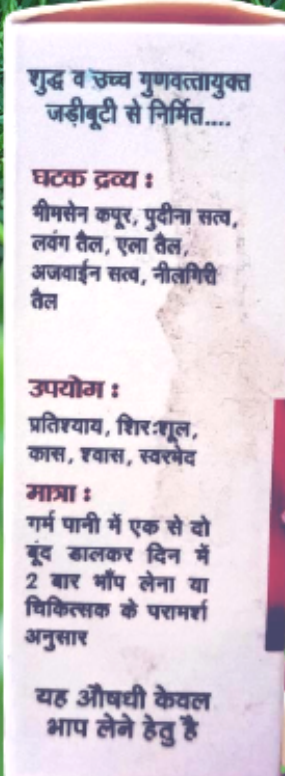 शुद्ध व उच्च गुणवत्तायुक्त
जड़ीबूटी से निर्मित....
घटक द्रव्य :
भीमसेन कपूर, पुदीना सत्व,
लवंग तैल, एला तैल,
अजवाईन सत्व, नीलगिरी
तैल
उपयोग :
प्रतिश्याय, शिरःशूल,
कास, श्वास, स्वरभेद
मात्रा :
गर्म पानी में एक से दो
बूंद डालकर दिन में
2 बार भाँप लेना या
चिकित्सक के परामर्श
अनुसार
यह औषधी केवल
भाप लेने हेतु है